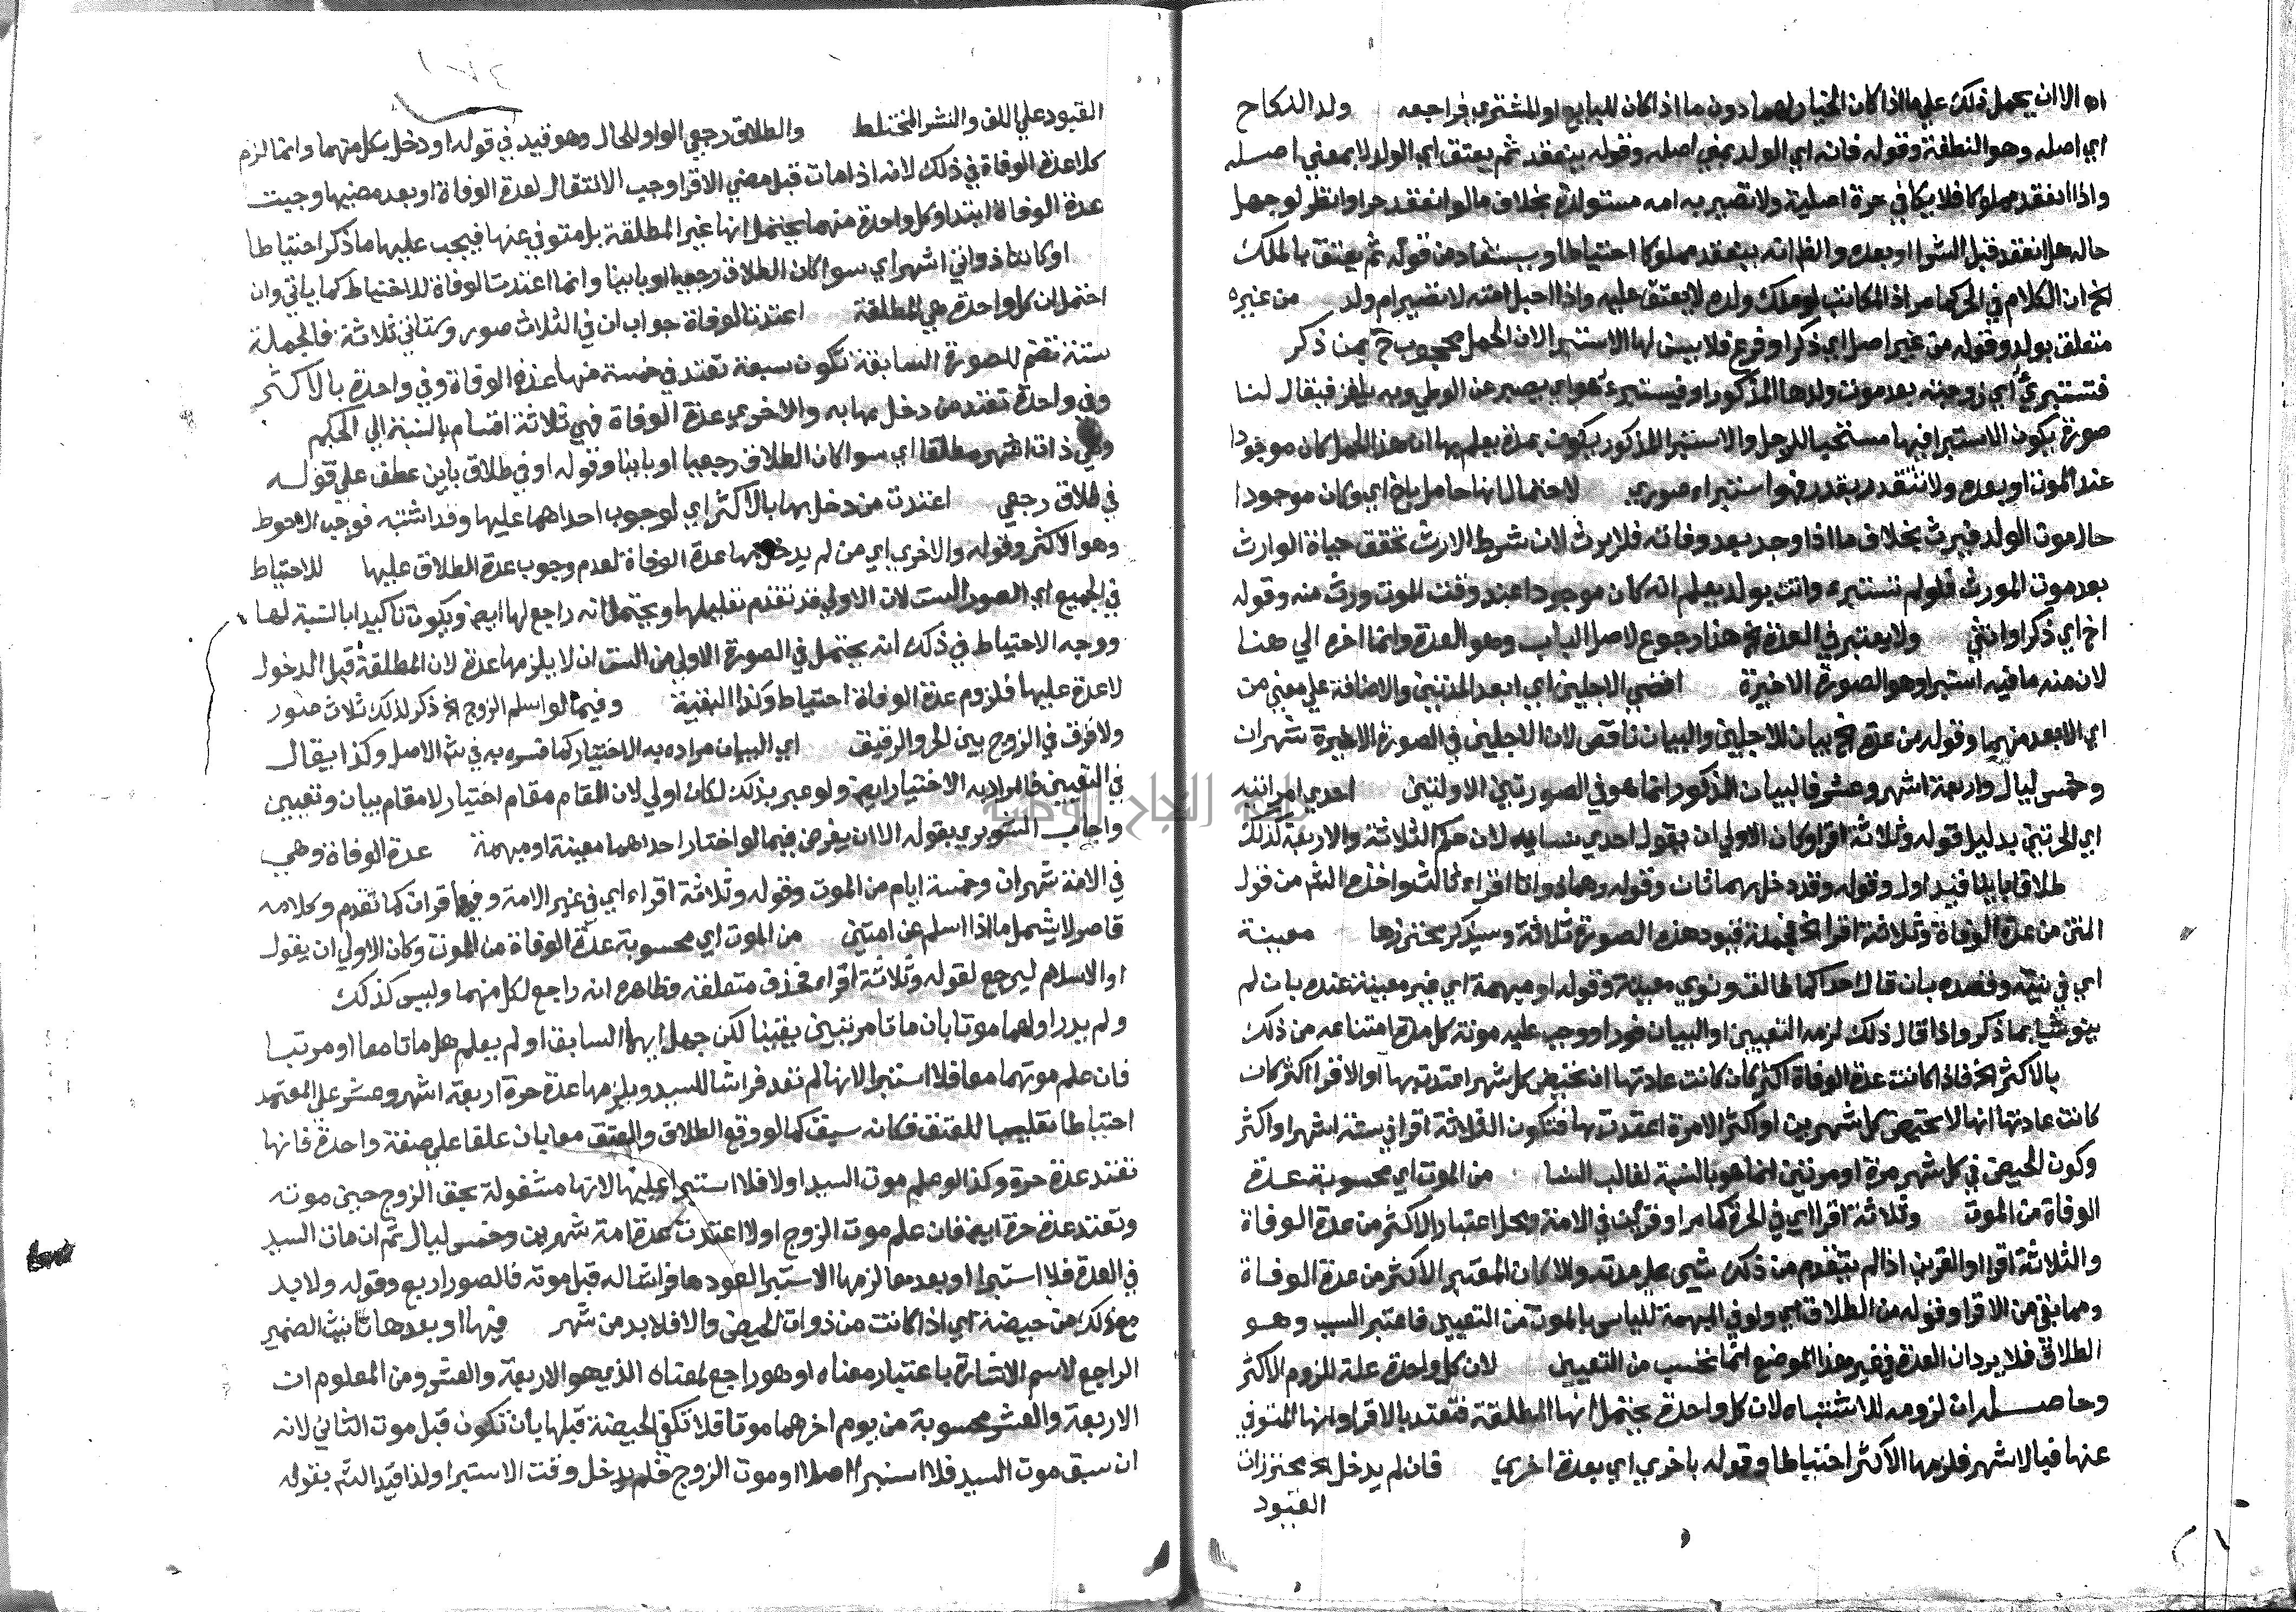 اه الا ان يحمل ذلك على ما اذا كان الخيار لهما دون ما اذا كان للبايع او المشتري فراجعه ولد النكاح
اي اصله وهو النطفة وقوله فانه اي الولد بمعني اصله وقوله ينعقد ثم يعتق اي الولد لا بمعني اصله
واذا انعقد مملوكا فلا يكافي حرة اصلية ولا تصير به امه مستولدة بخلاف ما لو انعقد حرا وانظر لو جهل
حاله هل انعقد قبل الشرا او بعده والظ انه ينعقد مملوكا احتياطا ويستفاد من قوله ثم يعتق بالملك
الخ ان الكلام في الحر كما مر اذ المكاتب لو ملك ولده لا يعتق عليه واذا احبل امته لا تصير ام ولد من غيره
متعلق بولد وقوله من غير اصل اي ذكر او فرع فلا بيس لها الاستبرا لان الحمل محجوب ح بمن ذكر
فتستبري اي زوجته بعد موت ولدها المذكور او فيستبرء هو اي يصبر عن الوطي وبه يلغز فيقال لنا
صورة يكون الاستبرا فيها مستحبا للرجل والاستبرا المذكور يكون بمدة يعلم بها ان هذا الحمل كان موجودا
عند الموت او بعده ولا تتقدر بقدر فهو استبراء صوري لاحتمال انها حامل باخ اي وكان موجودا
حال موت الولد فيرث بخلاف ما اذا وجد بعد وفاته فلا يرث لان شرط الارث تحقق حياة الوارث
بعد موت المورث فلو لم تستبرء واتت بولد يعلم انه كان موجودا عند وقت الموت ورث منه وقوله
اخ اي ذكر او انثي ولا يعتبر في العدة الخ هذا رجوع لاصل الباب وهو العدة وانما اخره الي هنا
لان منه ما فيه استبرا وهو الصورة الاخيرة اقصي الاجلين اي ابعد المدتين والاضافة علي معني من
اي الابعد منهما وقوله من عدة الخ بيان للاجلين والبيان ناقص لان الاجلين في الصورة الاخيرة شهران
وخمس ليال واربعة اشهر وعشر فالبيان المذكور انما هو في الصورتين الاولتين احدي امراتيه
اي الحرتين بدليل قوله وثلاثة اقرا وكان الاولي ان يقول احدي نسايه لان حكم الثلاثة والاربعة كذلك
طلاقا باينا قيد اول وقوله وقد دخل بهما ثان وقوله وهما ذواتا اقراء ثالث واخذه الش من قول
المتن من عدة الوفاة وثلاثة اقرا الخ فجملة قيود هذه الصورة ثلاثة وسيذكر محترزها معينة
اي في نيته وقصده بان قال احداكما طالق ونوي معينة وقوله او مبهمة اي غير معينة عنده بان لم
ينو شيا بما ذكر واذا قال ذلك لزمه التعيين او البيان فورا ووجب عليه مونة كل مدة امتناعه من ذلك
بالاكثر الخ فاذا كانت عدة الوفاة اكثر كان كانت عادتها ان تحيض كل شهر اعتدت بها او الاقرا اكثر كان
كانت عادتها انها لا تحيض كل شهرين او اكثر الا مرة اعتدت بها فتكون الثلاثة اقرا في ستة اشهر او اكثر
وكون الحيض في كل شهر مرة او مرتين انما هو بالنسبة لغالب النسا من الموت اي محسوبة عدة
الوفاة من الموت وثلاثة اقرا اي في الحرة كما مر او قرئين في الامة ومحل اعتبار الاكثر من عدة الوفاة
والثلاثة اقرا او القرين اذا لم يتقدم من ذلك شي علي مدته والا كان المعتبر الاكثر من عدة الوفاة
ومما بقي من الاقرا وقوله من الطلاق اي ولو في المبهمة للياس بالموت من التعيين فاعتبر السبب وهو
الطلاق فلا يرد ان العدة في غير هذا الموضع انما تحسب من التعيين لان كل واحدة علة للزوم الاكثر
وحاصله ان لزومه للاشتباه لان كل واحدة يحتمل انها المطلقة فتعتد بالاقرا وانها المتوفي
عنها فبالاشهر فلزمها الاكثر احتياطا وقوله باخري اي بعدة اخري فان لم يدخل الخ محترزات
القيود
القيود علي اللف والنشر المختلط والطلاق رجعي الواو للحال وهو قيد في قوله او دخل بكل منهما وانما لزم
كلا عدة الوفاة في ذلك لانه اذا مات قبل مضي الاقرا وجب الانتقال لعدة الوفاة او بعد مضيها وجبت
عدة الوفاة ابتدا وكل واحدة منهما يحتمل انها غير المطلقة بل متوفي عنها فيجب عليها ما ذكر احتياطا
او كانتا ذواتي اشهر اي سوا كان الطلاق رجعيا او باينا وانما اعتدتا لوفاة للاحتياط كما ياتي وان
احتمل ان كل واحدة هي المطلقة اعتدتا لوفاة جواب ان في الثلاث صور وستاتي ثلاثة فالجملة
ستة تضم للصورة السابقة تكون سبعة تعتد في خمسة منها عدة الوفاة وفي واحدة بالاكثر
وفي واحدة تعتد من دخل بها به والاخري عدة الوفاة فهي ثلاثة اقسام بالنسبة الي الحكم
وهي ذات اشهر مطلقا اي سوا كان الطلاق رجعيا او باينا وقوله او في طلاق باين عطف علي قوله
في طلاق رجعي اعتدت من دخل بها بالاكثر اي لوجوب احداهما عليها وقد اشتبه فوجب الاحوط
وهو الاكثر وقوله والاخري اي من لم يدخل بها عدة الوفاة لعدم وجوب عدة الطلاق عليها للاحتياط
في الجميع اي الصور الست لان الاولي قد تقدم تعليلها ويحتمل انه راجع لها ايض ويكون تاكيدا بالنسبة لها
ووجه الاحتياط في ذلك انه يحتمل في الصورة الاولي من الست ان لا يلزمها عدة لان المطلقة قبل الدخول
لا عدة عليها فلزوم عدة الوفاة احتياط وكذا البقية وفيما لو اسلم الزوج الخ ذكر لذلك ثلاث صور
ولا فرق في الزوج بين الحر والرقيق اي البيان مراده به الاختيار كما فسره به في ش الاصل وكذا يقال
في التعيين فالمراد به الاختيار ايض ولو عبر بذلك لكان اولي لان المقام مقام اختيار لا مقام بيان وتعيين
واجاب الشوبري بقوله الا ان يفرض فيما لو اختار احداهما معينة او مبهمة عدة الوفاة وهي
في الامة شهران وخمسة ايام من الموت وقوله وثلاثة اقراء اي في غير الامة وفيها قران كما تقدم وكلامه
قاصر لا يشمل ما اذا اسلم عن امتين من الموت اي محسوبة عدة الوفاة من الموت وكان الاولي ان يقول
او الاسلام ليرجع لقوله وثلاثة اقراء فحذف متعلقه وظاهره انه راجع لكل منهما وليس كذلك
ولم يدر اولهما موتا بان ماتا مرتبين يقينا لكن جهل ايهما السابق او لم يعلم هل ماتا معا او مرتبا
فان علم موتهما معا فلا استبرا لانها لم تعد فراشا للسيد ويلزمها عدة حرة اربعة اشهر وعشر علي المعتمد
احتياطا تغليبا للعتق فكانه سبق كما لو وقع الطلاق والعتق معا بان علقا علي صفة واحدة فانها
تعتد عدة حرة وكذا لو علم موت السيد اولا فلا استبرا عليها لانها مشغولة بحق الزوج حين موته
وتعتد عدة حرة ايض فان علم موت الزوج اولا اعتدت عدة امة شهرين وخمس ليال ثم ان مات السيد
في العدة فلا استبرا او بعدها لزمها الاستبرا لعودها فراشا له قبل موته فالصور اربع وقوله ولا بد
مع ذلك من حيضة اي اذا كانت من ذوات الحيض والا فلا بد من شهر فيها او بعدها تانيث الضمير
الراجع لاسم الاشارة باعتبار معناه او هو راجع لمعناه الذي هو الاربعة والعشر ومن المعلوم ان
الاربعة والعشر محسوبة من يوم اخرهما موتا فلا تكفي الحيضة قبلها بان تكون قبل موت الثاني لانه
ان سبق موت السيد فلا استبرا اصلا او موت الزوج فلم يدخل وقت الاستبرا ولذا قيد الش بقوله